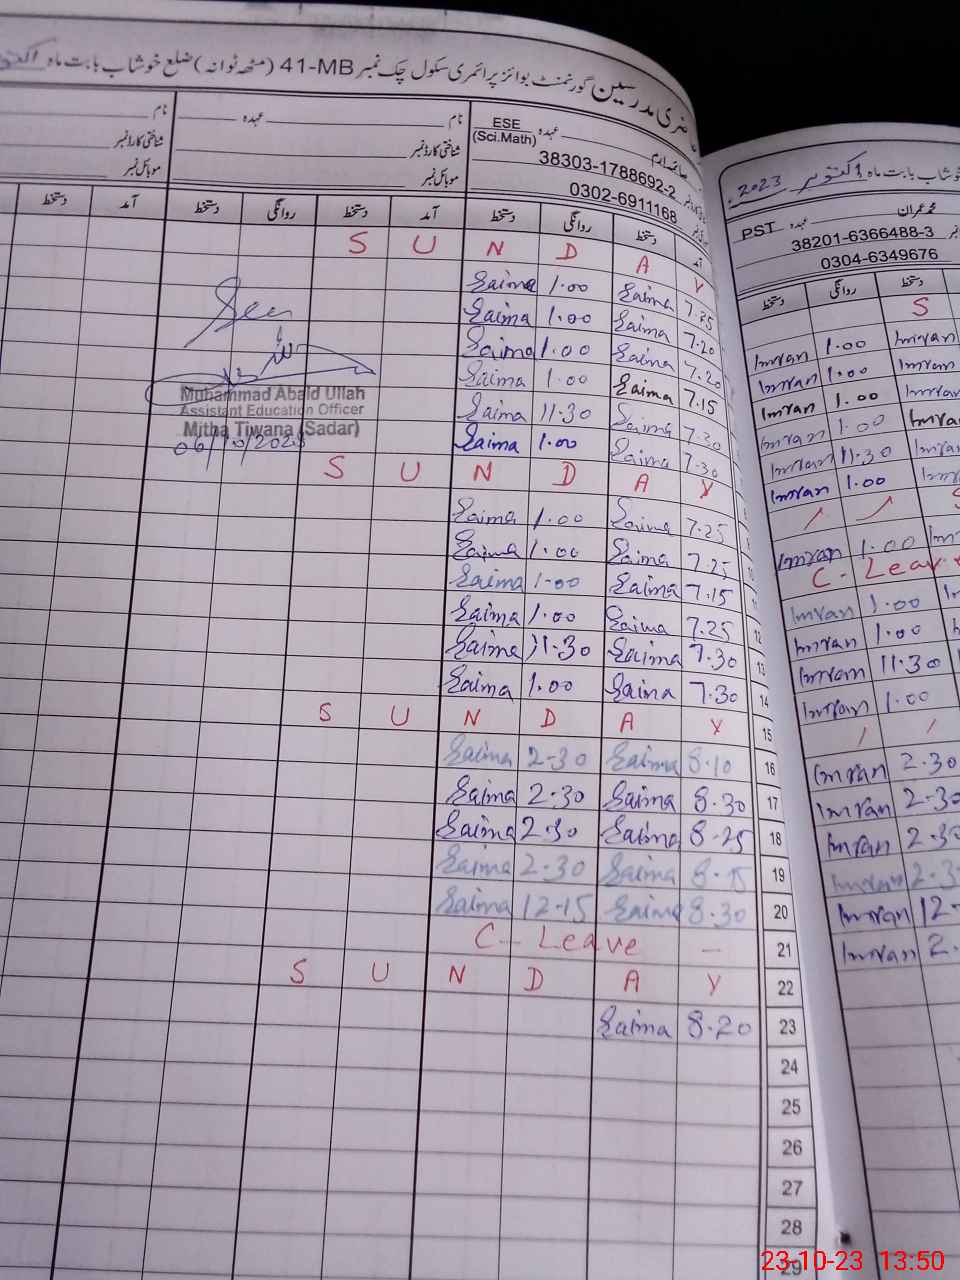 حاضری مدرسین گورنمنٹ بوائز پرائمری سکول چک نمبر 41-MB (مٹھہ ٹوانہ) ضلع خوشاب بابت ماہ اکتوبر
نام عہدہ ESE (Sci.Math)
38303-1788692-2
0302-6911168
نام عہدہ
شناختی کارڈ نمبر
موبائل نمبر
نام
شناختی کارڈ نمبر
موبائل نمبر
آمد دستخط روانگی دستخط آمد دستخط روانگی دستخط آمد دستخط
S U N D A Y
Saima 1.00 Saima 7.25
Saima 1.00 Saima 7.20
Saima 1.00 Saima 7.20
Saima 1.00 Saima 7.15
Saima 11.30 Saima 7.30
Saima 1.00 Saima 7.30
See
Muhammad Abaid Ullah
Assistant Education Officer
Mitha Tiwana (Sadar)
06/10/2023
S U N D A Y
Saima 1.00 Saima 7.25
Saima 1.00 Saima 7.25 10
Saima 1.00 Saima 7.15 11
Saima 1.00 Saima 7.25 12
Saima 11.30 Saima 7.30 13
Saima 1.00 Saima 7.30 14
S U N D A Y 15
Saima 2-30 Saima 8.10 16
Saima 2.30 Saima 8.30 17
Saima 2.30 Saima 8-25 18
Saima 2.30 Saima 8.15 19
Saima 12-15 Saima 8.30 20
C - Leave - 21
S U N D A Y 22
Saima 8.20 23
24
25
26
27
28
29
خوشاب بابت ماہ اکتوبر 2023
محمد عمران عہدہ PST
38201-6366488-3
0304-6349676
دستخط روانگی دستخط
S
Imran 1.00 Imran
Imran 1.00 Imran
Imran 1.00
Imran 1.00
Imran 11.30
Imran 1.00
Imran 1.00
C - Leave
Imran 1.00
Imran 1.00
Imran 11.30
Imran 1.00
Imran 2.30
Imran 2.30
Imran 2.30
Imran 2.3
Imran 12-
Imran 2.
23-10-23 13:50